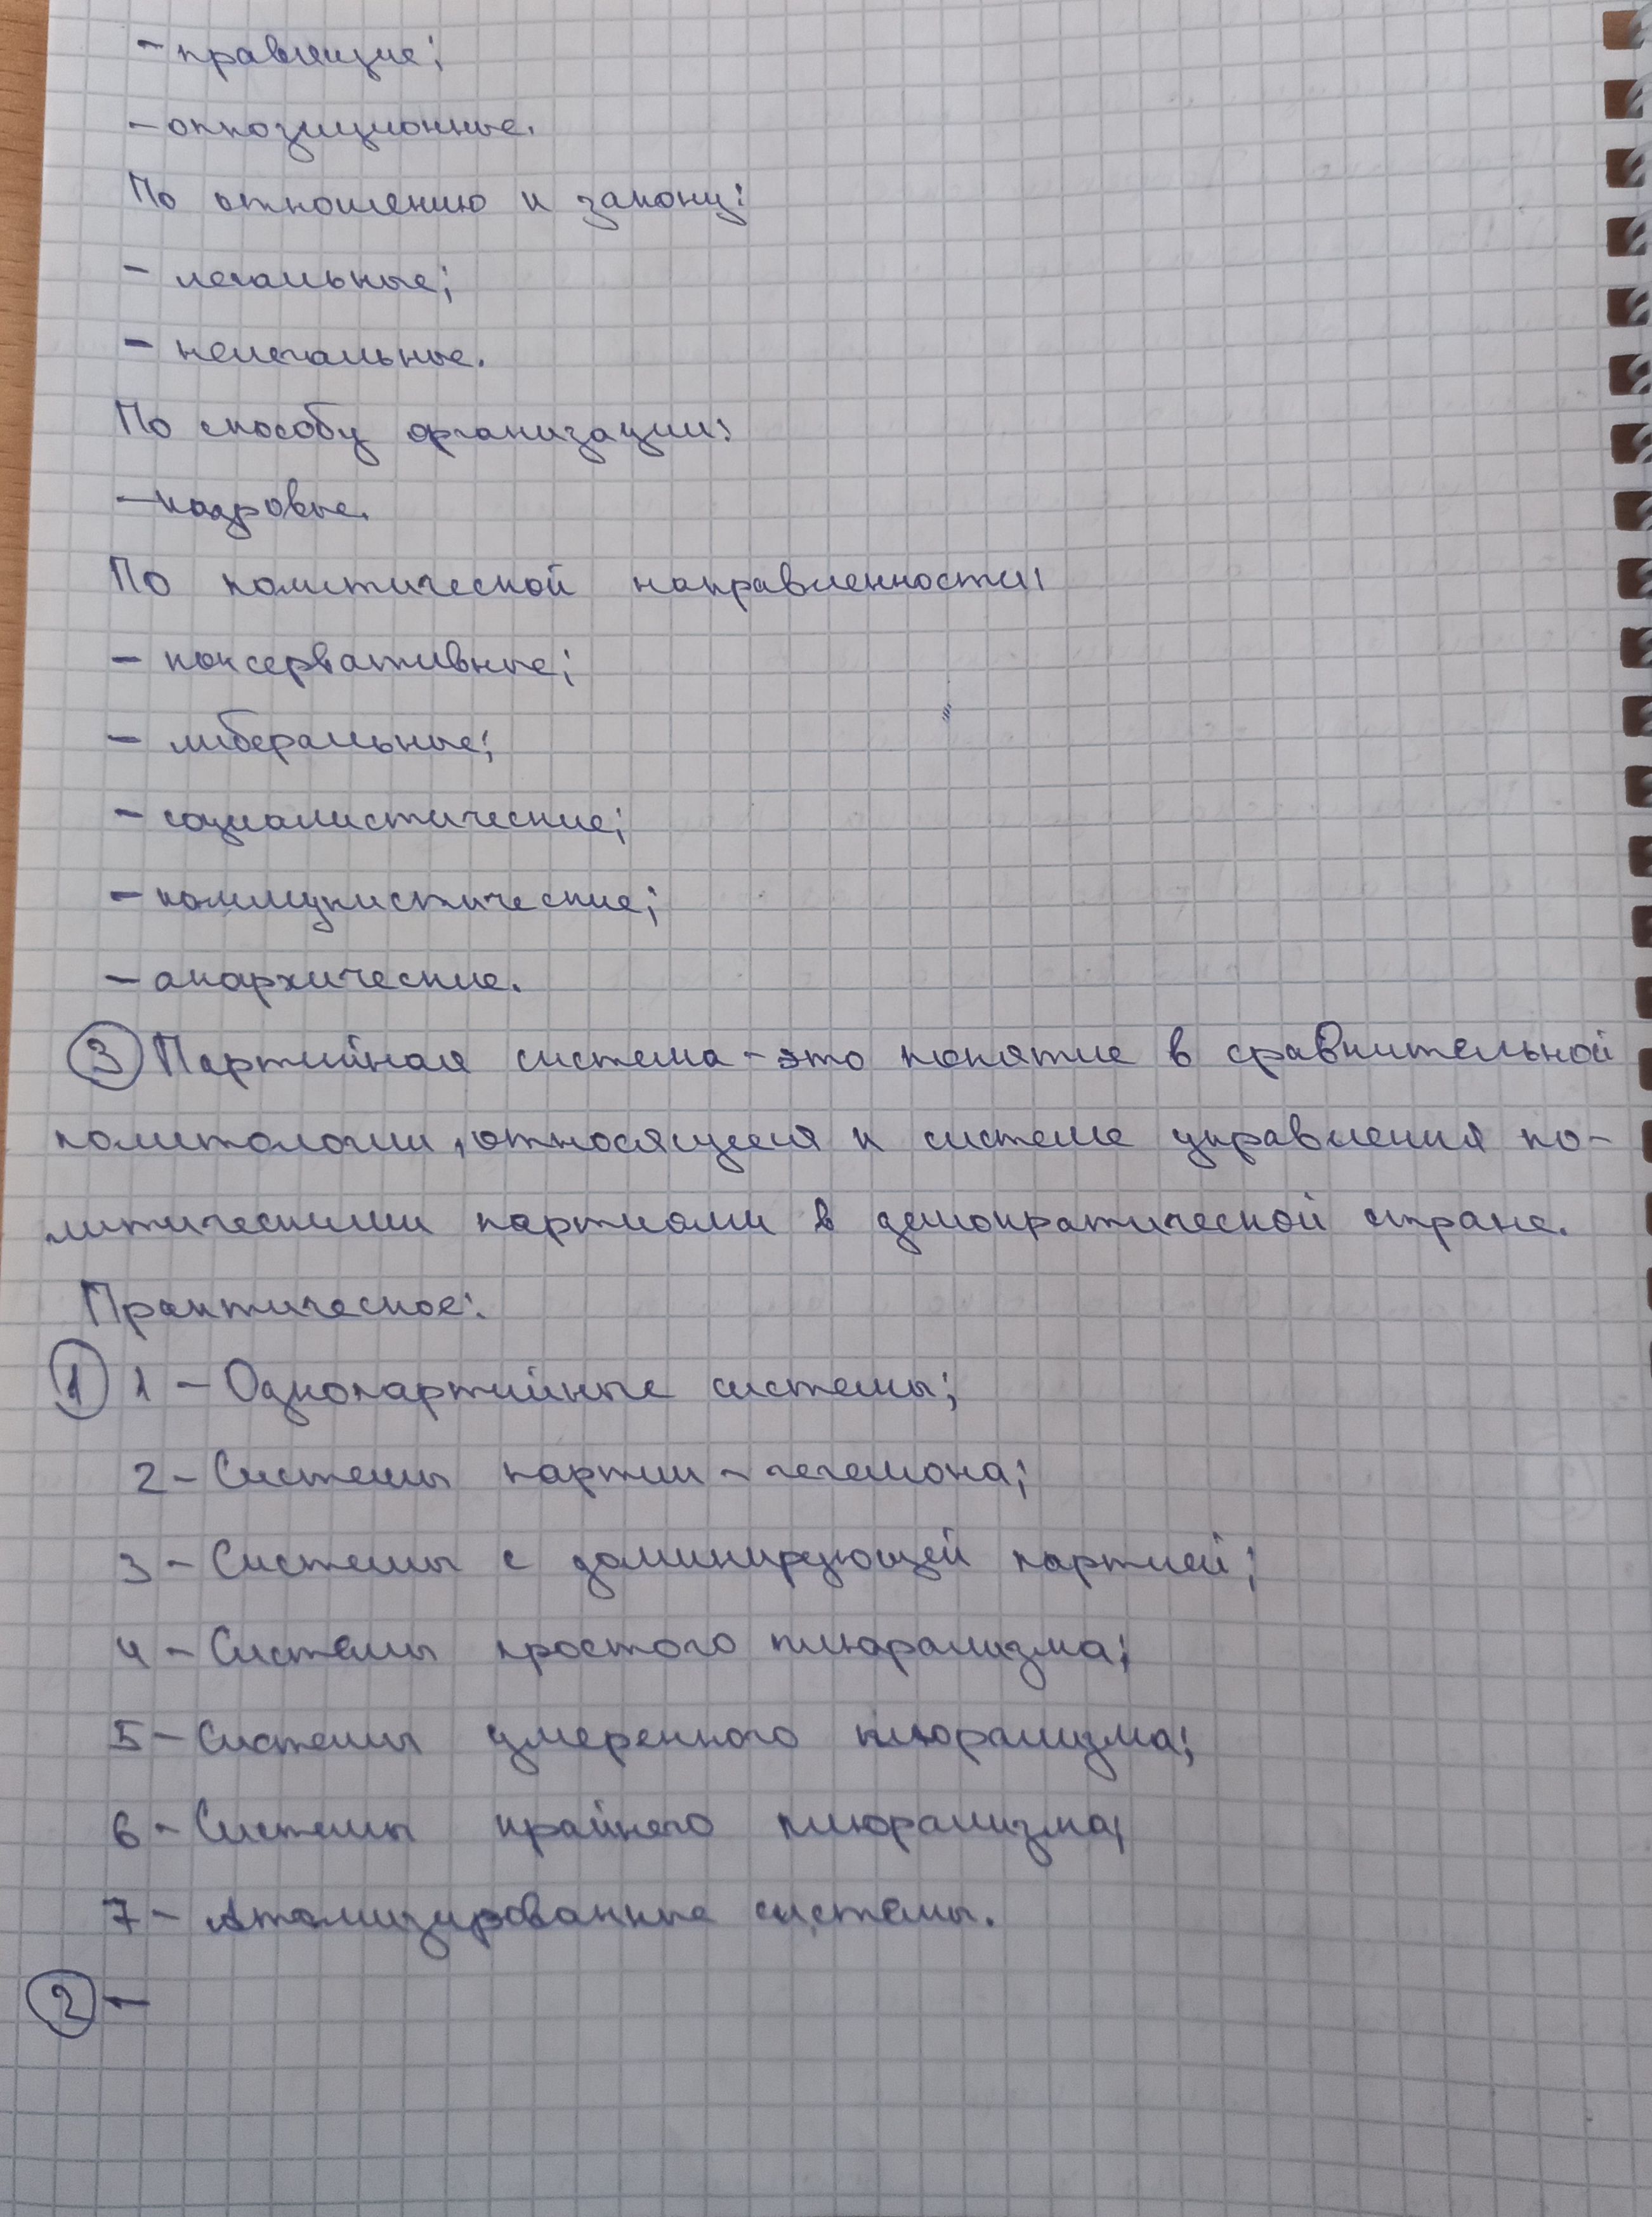 - правящие;
- оппозиционные.
По отношению к закону:
- легальные;
- нелегальные.
По способу организации:
- кадровые.
По политической направленности:
- консервативные;
- либеральные;
- социалистические;
- коммунистические;
- анархические.
3 Партийная система - это понятие в сравнительной
политологии, относящееся к системе управления по-
литическими партиями в демократической стране.
Практическое:
1 1 - Однопартийные системы;
2 - Системы партии - гегемона;
3 - Системы с доминирующей партией;
4 - Системы простого плюрализма;
5 - Системы умеренного плюрализма;
6 - Системы крайнего плюрализма;
7 - Атомизированные системы.
2 -